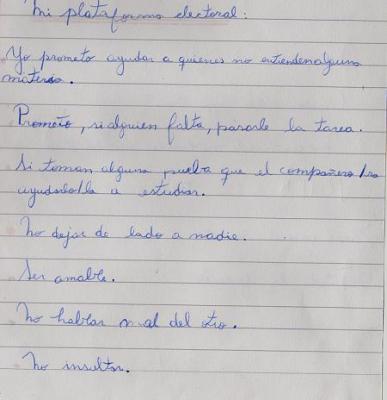 Mi plataforma electoral:
Yo prometo ayudar a quienes no entienden alguna
materia.
Prometo, si alguien falta, pasarle la tarea.
Si toman alguna prueba que el compañero/ra
ayudarlo/la a estudiar.
No dejar de lado a nadie.
Ser amable.
No hablar mal del otro.
No insultar.